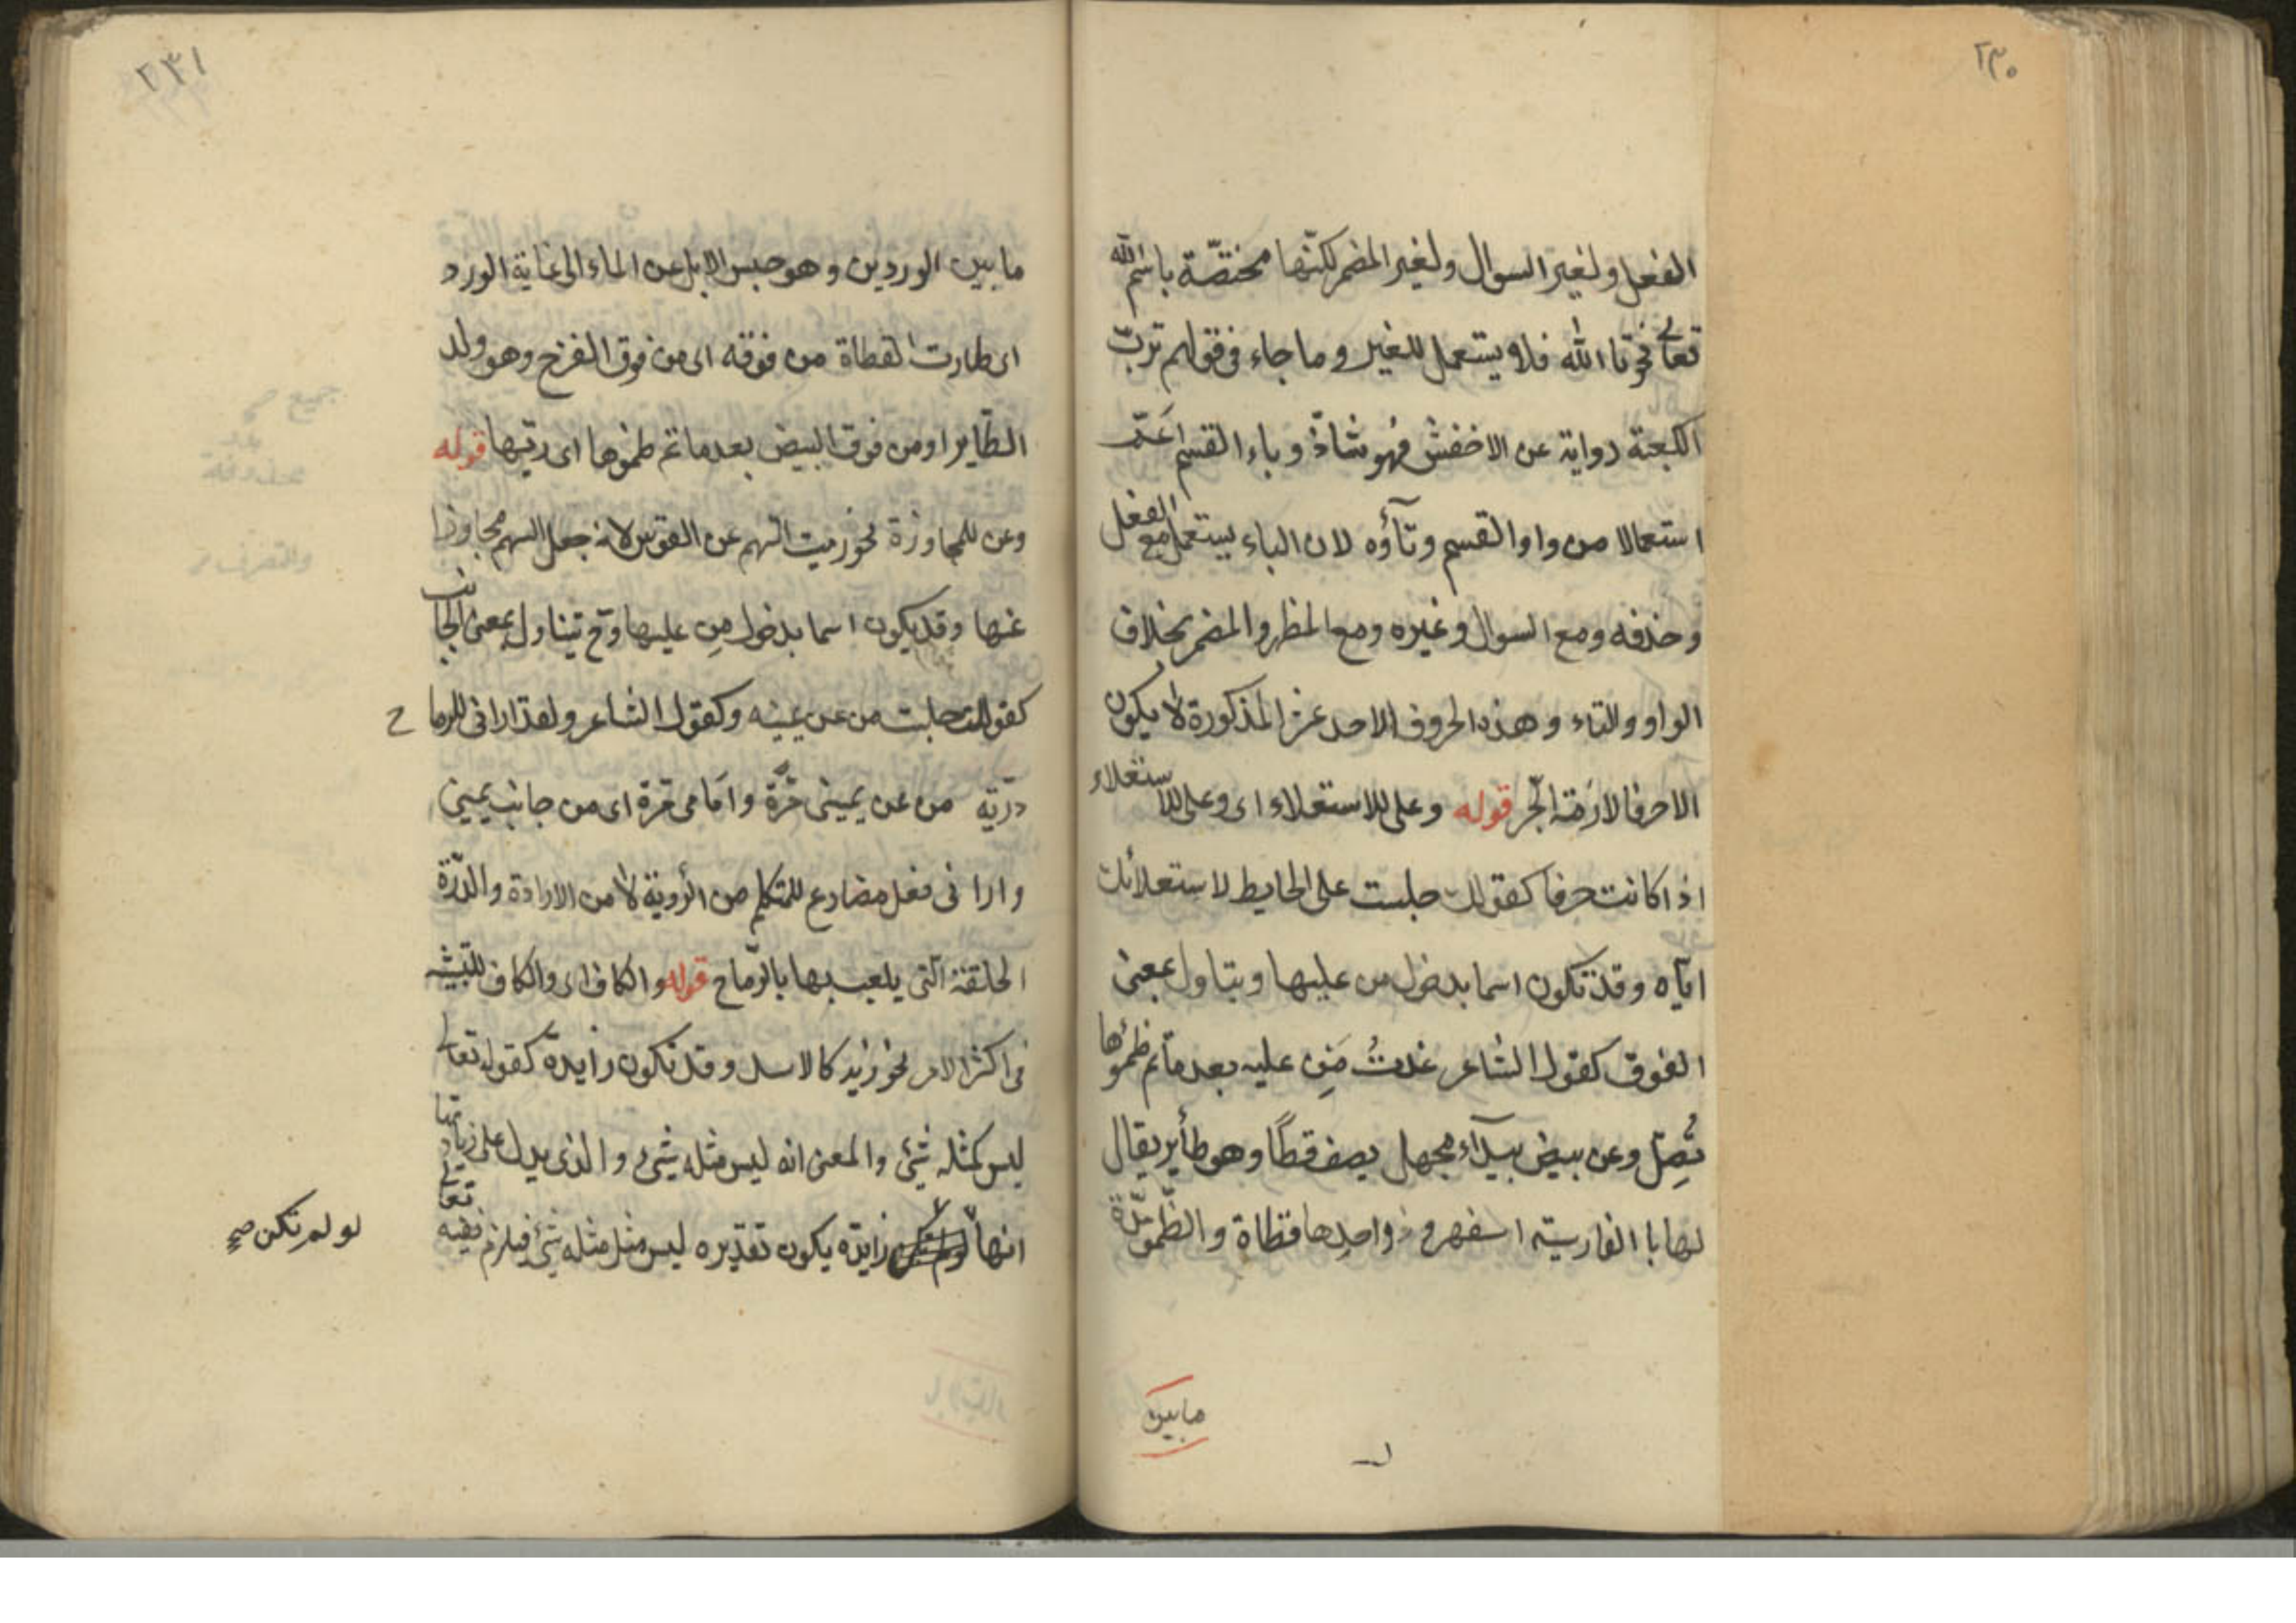 ٢٣٠
الفعل ولغير السوال ولغير المضمر لكنّها مختصّة باسم الله
تعالى نحو تا الله فلا يستعمل للغير وما جاء فى قولهم تربّ
الكعبة رواية عن الاخفش فهو شاذّ وباء القسم اعمّ
استعمالا من واو القسم وتآؤه لان الباء يستعمل مع الفعل
وحذفه ومع السوال وغيره ومع المظهر والمضمر بخلاف
الواو والتاء وهذه الحروف الاحد عشر المذكورة لا يكون
الا حرفا لازمة الجّر قوله وعلى للاستعلاء اى وعلى للاستعلاء
اذا كانت حرفا كقولك جلست على الحايط لاستعلائك
ايّاه وقد تكون اسما بدخول من عليها ويتاول بمعنى
الفوق كقول الشاعر غدتْ مَنِ عليه بعد ما تم ظمؤها
تُصِلّ وعن بيض ببيدآء مجهل يصف قطًا وهو طأير يقال
لها با الفارسيّه اسفهرود واحدها قطاة والظّموء مدّة
مابين
٢٣١
ما بين الوردين وهو حبس الابل عن الماء الى غاية الورد
اى طارت القطاة من فوقه اى من فوق الفرخ وهو ولد
الطّاير او من فوق البيض بعد ما تم ظمؤها اى ريّها قوله
وعن للمجاوزة نحو رميت السّهم عن القوس لانه جعل السهم مجاوزا
عنها وقد يكون اسما بدخول مِن عليها وح يتناول بمعنى الجانب
كقولك جلست من عن يمينه وكقول الشاعر ولقد ارانى للرماح
دريّة من عن يمينى مرَّة وامَامى مرة اى من جانب يمينى
وارانى فعل مضارع للمتكلم من الرُوية لا من الارادة والدّرّة
الحلقة الّتى يلعب بها بالرّماح قوله والكاف اى والكاف للتّشبيه
فى اكثر الامر نحو زيد كالاسد وقد تكون زايدة كقوله تعالى
ليس كمثله شئ والمعنى انه ليس مثله شئ والذى يدل على زيادتها
انها زايدة يكون تقديره ليس مثل مثله شئ فيلزم فيه تعالى
لو لم تكن صح